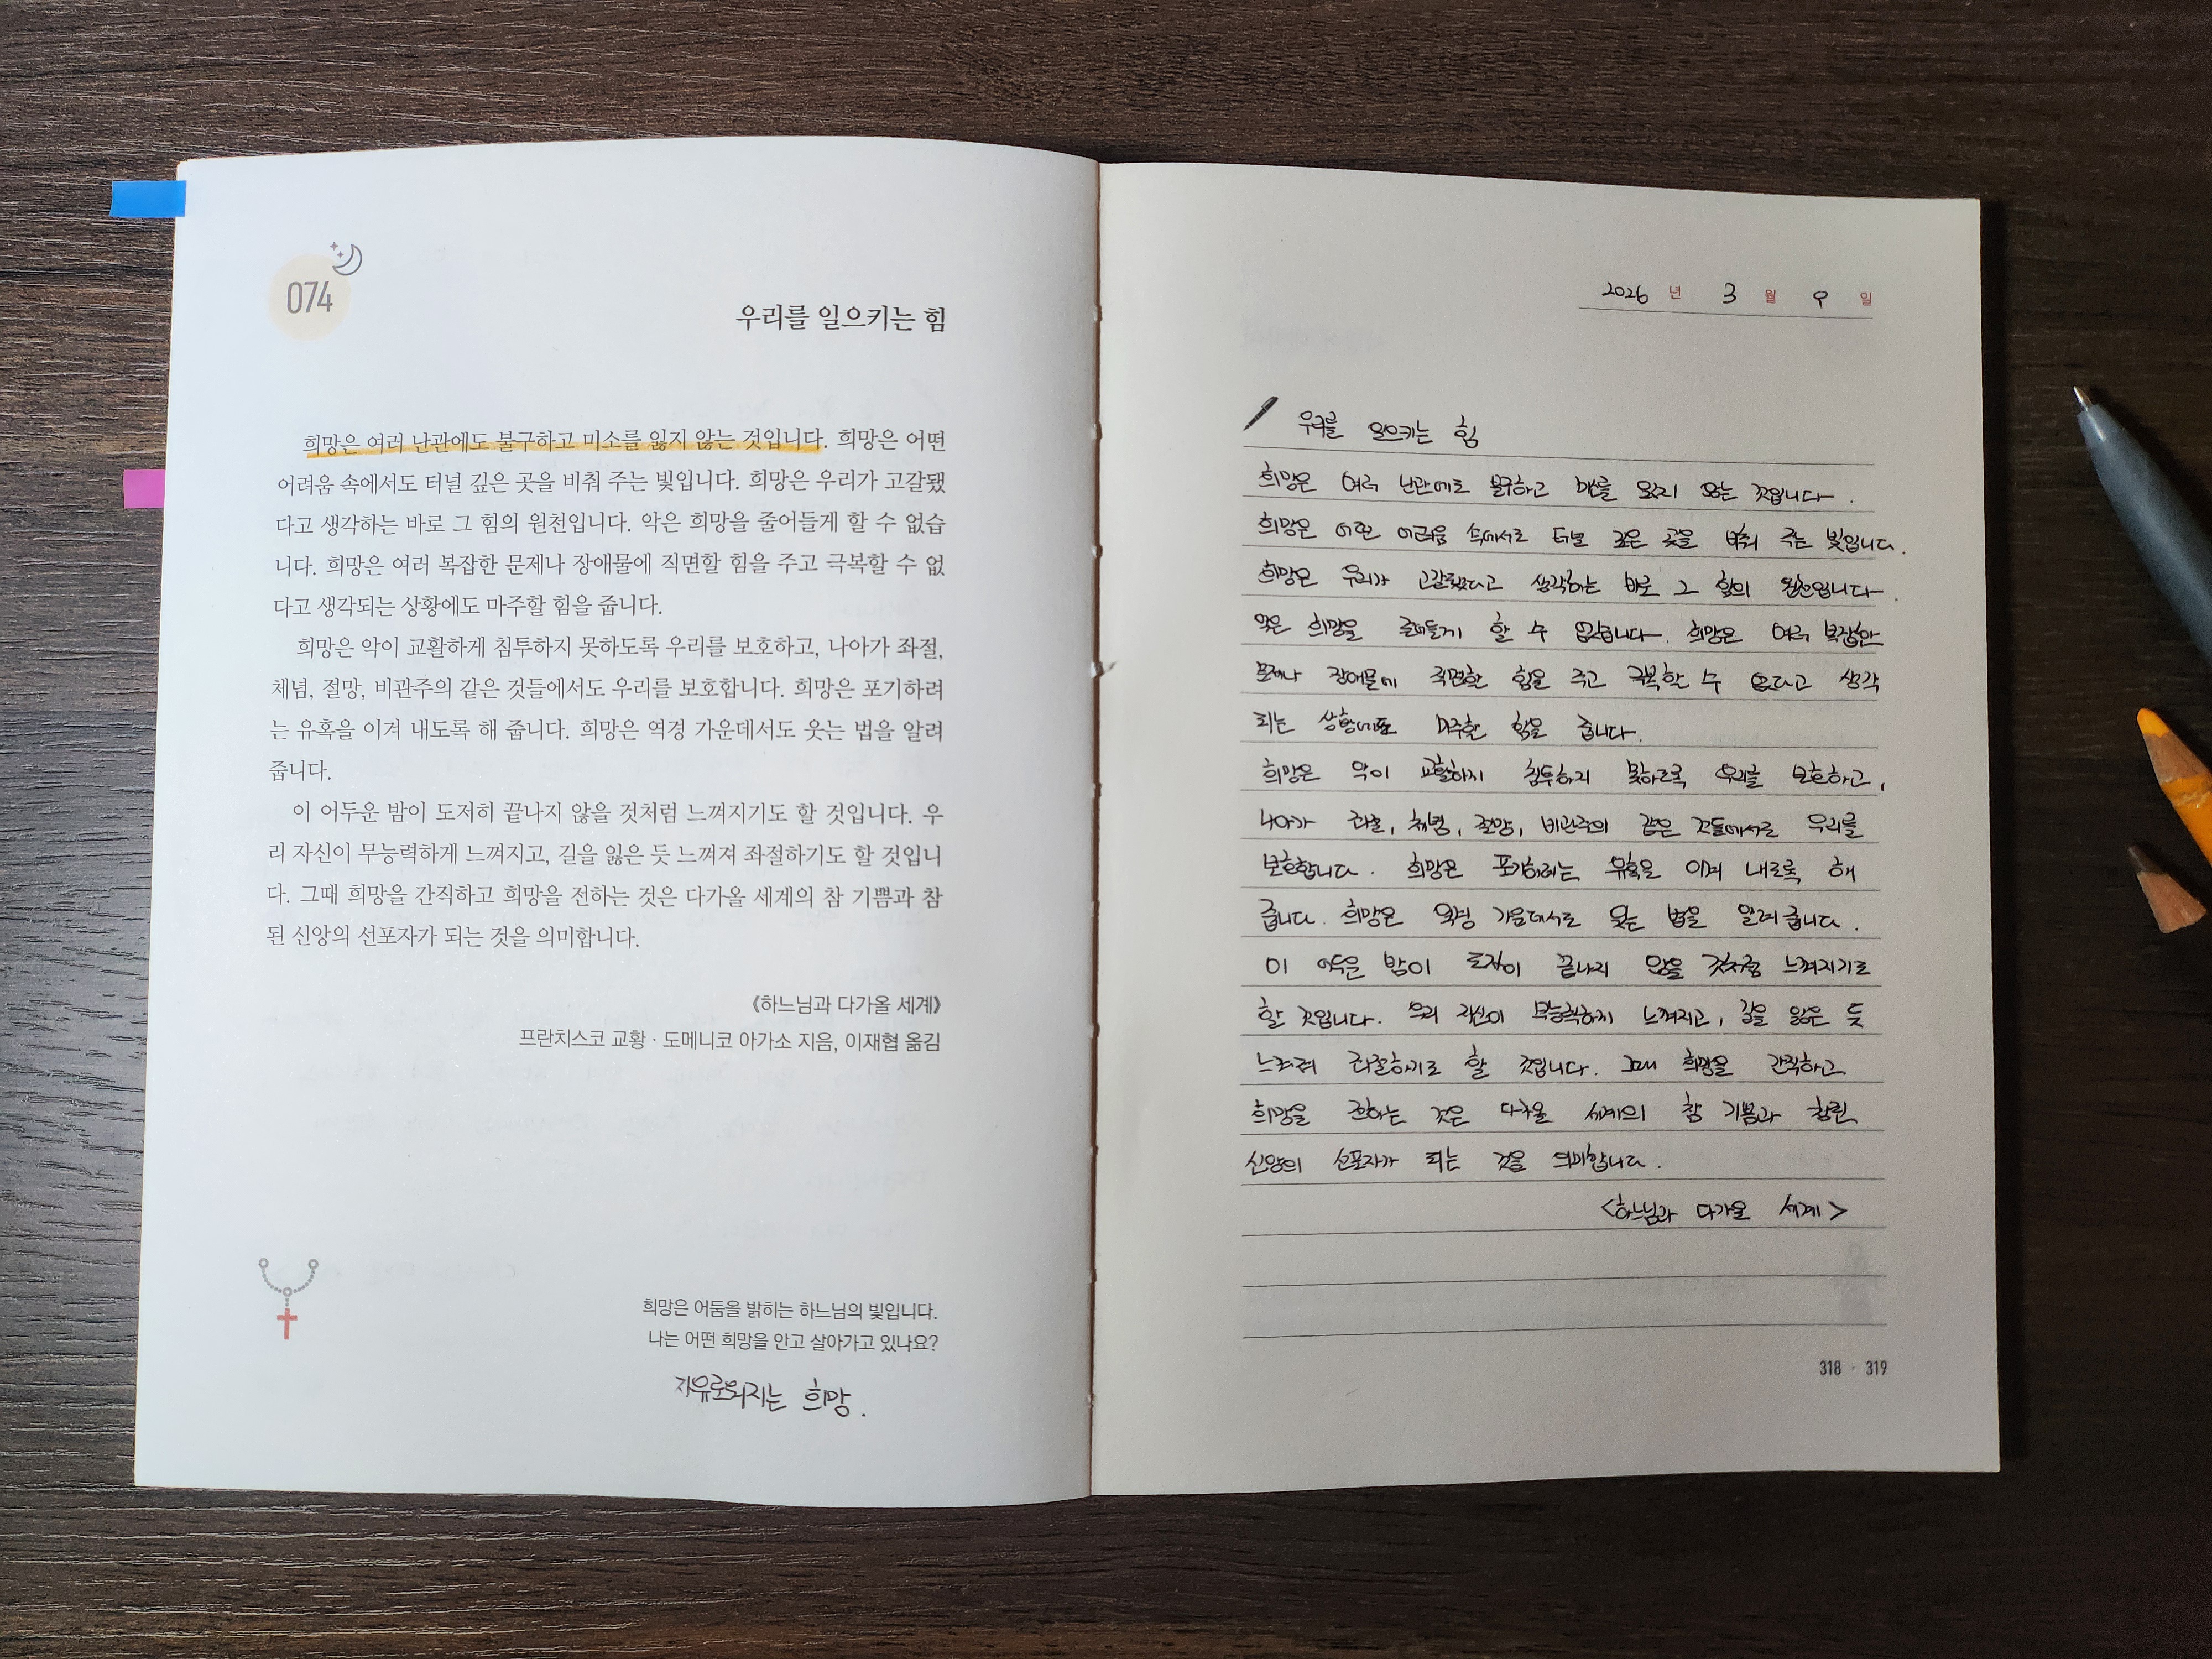 074
우리를 일으키는 힘
희망은 여러 난관에도 불구하고 미소를 잃지 않는 것입니다. 희망은 어떤
어려움 속에서도 터널 깊은 곳을 비춰 주는 빛입니다. 희망은 우리가 고갈됐
다고 생각하는 바로 그 힘의 원천입니다. 악은 희망을 줄어들게 할 수 없습
니다. 희망은 여러 복잡한 문제나 장애물에 직면할 힘을 주고 극복할 수 없
다고 생각되는 상황에도 마주할 힘을 줍니다.
희망은 악이 교활하게 침투하지 못하도록 우리를 보호하고, 나아가 좌절,
체념, 절망, 비관주의 같은 것들에서도 우리를 보호합니다. 희망은 포기하려
는 유혹을 이겨 내도록 해 줍니다. 희망은 역경 가운데서도 웃는 법을 알려
줍니다.
이 어두운 밤이 도저히 끝나지 않을 것처럼 느껴지기도 할 것입니다. 우
리 자신이 무능력하게 느껴지고, 길을 잃은 듯 느껴져 좌절하기도 할 것입니
다. 그때 희망을 간직하고 희망을 전하는 것은 다가올 세계의 참 기쁨과 참
된 신앙의 선포자가 되는 것을 의미합니다.
《하느님과 다가올 세계》
프란치스코 교황 · 도메니코 아가소 지음, 이재협 옮김
희망은 어둠을 밝히는 하느님의 빛입니다.
나는 어떤 희망을 안고 살아가고 있나요?
자유로워지는 희망.
2026 년 3 월 9 일
우리를 일으키는 힘
희망은 여러 난관에도 불구하고 미소를 잃지 않는 것입니다.
희망은 어떤 어려움 속에서도 터널 깊은 곳을 비춰 주는 빛입니다.
희망은 우리가 고갈됐다고 생각하는 바로 그 힘의 원천입니다.
악은 희망을 줄어들게 할 수 없습니다. 희망은 여러 복잡한
문제나 장애물에 직면할 힘을 주고 극복할 수 없다고 생각
되는 상황에도 마주할 힘을 줍니다.
희망은 악이 교활하게 침투하지 못하도록 우리를 보호하고,
나아가 좌절, 체념, 절망, 비관주의 같은 것들에서도 우리를
보호합니다. 희망은 포기하려는 유혹을 이겨 내도록 해
줍니다. 희망은 역경 가운데서도 웃는 법을 알려 줍니다.
이 어두운 밤이 도저히 끝나지 않을 것처럼 느껴지기도
할 것입니다. 우리 자신이 무능력하게 느껴지고, 길을 잃은 듯
느껴져 좌절하기도 할 것입니다. 그때 희망을 간직하고
희망을 전하는 것은 다가올 세계의 참 기쁨과 참된
신앙의 선포자가 되는 것을 의미합니다.
<하느님과 다가올 세계>
318 · 319